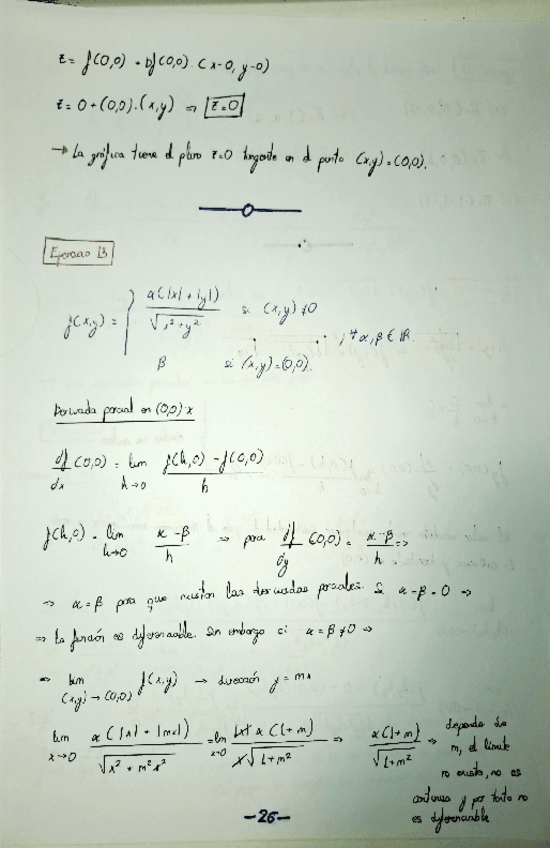 z = f(0,0) + Df(0,0) · (x-0, y-0)
z = 0 + (0,0) · (x,y) ⇒ z=0
→ La gráfica tiene el plano z=0 tangente en el punto (x,y) = (0,0).
Ejercicio 13
f(x,y) = { α(|x| + |y|) / √(x²+y²) si (x,y) ≠ 0
β si (x,y)=(0,0). , ∀ α, β ∈ ℝ.
Derivada parcial en (0,0) x
df/dx (0,0) = lim h→0 f(h,0) - f(0,0) / h
f(h,0) = lim h→0 α - β / h ⇒ para df/dy (0,0) = α - β / h ⇒
⇒ α = β para que existan las derivadas parciales. Si α - β = 0 ⇒
⇒ la función es diferenciable. Sin embargo si α = β ≠ 0 ⇒
⇒ lim (x,y)→(0,0) f(x,y) → dirección y = mx
lim x→0 α(|x| + |mx|) / √(x² + m²x²) = lim x→0 |x| α(1+m) / x√(1+m²) ⇒ α(1+m) / √(1+m²) ⇒ depende de
m, el límite
no existe, no es
continua y por tanto no
es diferenciable
-26-